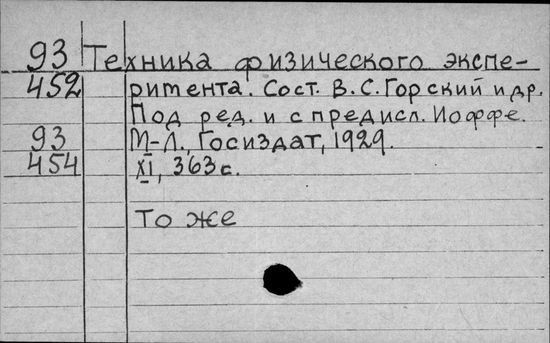 93 Техника физического экспе-
452 римента. Сост. В.С. Горский и др.
Под ред. и с предисл. Иоффе.
93 М-Л., Госиздат, 1929.
454 XI, 363 с.
То же